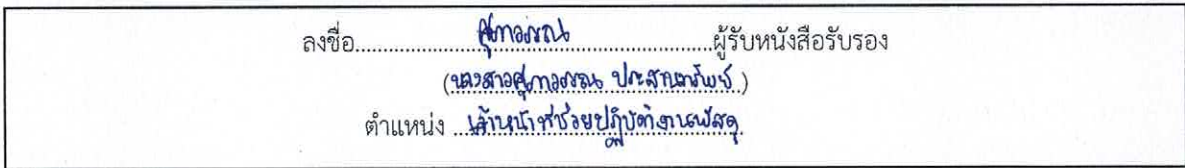 ลงชื่อ.......... ศุภาวรรณ ..........ผู้รับหนังสือรับรอง
(นางสาวศุภาวรรณ ประสานทรัพย์)
ตำแหน่ง เจ้าหน้าที่ช่วยปฏิบัติงานพัสดุ